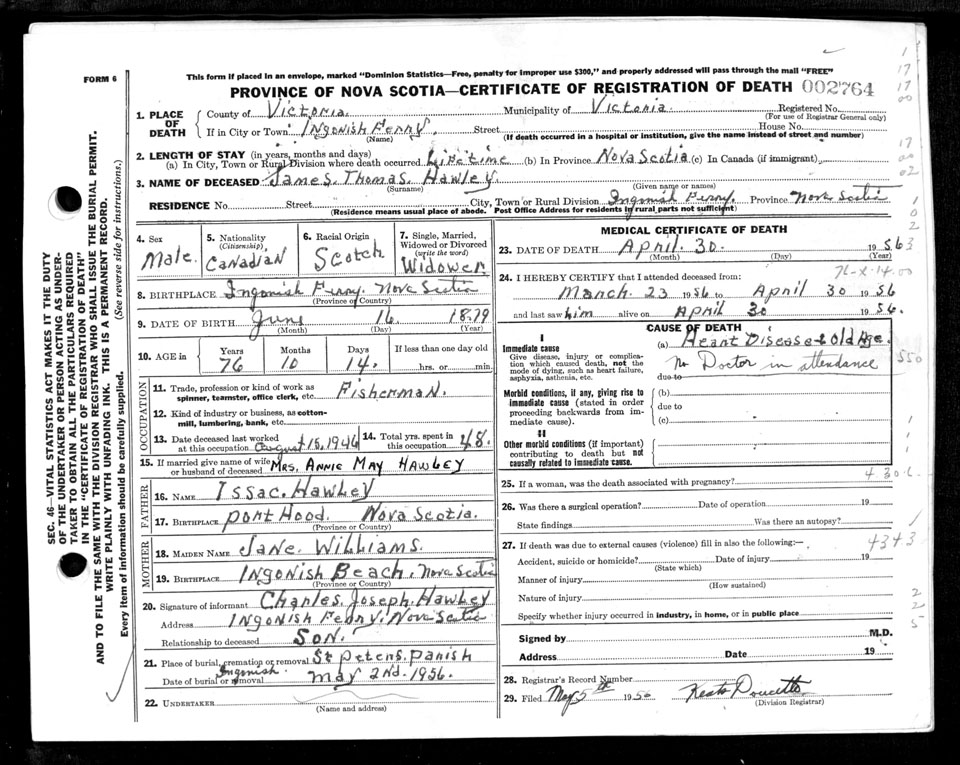 FORM 6
This form if placed in an envelope, marked "Dominion Statistics—Free, penalty for improper use $300," and properly addressed will pass through the mail "FREE"
PROVINCE OF NOVA SCOTIA—CERTIFICATE OF REGISTRATION OF DEATH 002764
1. PLACE OF DEATH
County of Victoria. Municipality of Victoria. Registered No.
(For use of Registrar General only)
If in City or Town Ingonish Ferry. Street House No.
(Name) (If death occurred in a hospital or institution, give the name instead of street and number)
2. LENGTH OF STAY (in years, months and days)
(a) In City, Town or Rural Division where death occurred Lifetime (b) In Province Nova Scotia (c) In Canada (if immigrant)
3. NAME OF DECEASED James Thomas Hawley.
(Surname) (Given name or names)
RESIDENCE No. Street City, Town or Rural Division Ingonish Ferry. Province Nova Scotia
(Residence means usual place of abode. Post Office Address for residents in rural parts not sufficient)
4. Sex
Male.
5. Nationality
(Citizenship)
Canadian
6. Racial Origin
Scotch
7. Single, Married, Widowed or Divorced
(write the word)
Widower
8. BIRTHPLACE Ingonish Ferry. Nova Scotia
(Province or Country)
9. DATE OF BIRTH June 16 1879
(Month) (Day) (Year)
10. AGE in
Years Months Days If less than one day old
76 10 14. hrs. or min.
OCCUPATION
11. Trade, profession or kind of work as
spinner, teamster, office clerk, etc. Fisherman.
12. Kind of industry or business, as cotton-
mill, lumbering, bank, etc.
13. Date deceased last worked
at this occupation August 15, 1946
14. Total yrs. spent in
this occupation 48.
15. If married give name of wife
or husband of deceased Mrs. Annie May Hawley
FATHER
16. NAME Issac. Hawley
17. BIRTHPLACE Port Hood. Nova Scotia.
(Province or Country)
MOTHER
18. MAIDEN NAME Jane. Williams.
19. BIRTHPLACE Ingonish Beach. Nova Scotia
(Province or Country)
20. Signature of informant Charles. Joseph. Hawley
Address Ingonish Ferry. Nova Scotia
Relationship to deceased Son.
21. Place of burial, cremation or removal St Peters. Parish
Ingonish.
Date of burial or removal May 2nd. 1956.
22. UNDERTAKER
(Name and address)
MEDICAL CERTIFICATE OF DEATH
23. DATE OF DEATH April. 30. 1956
(Month) (Day) (Year)
76-X-14.00
24. I HEREBY CERTIFY that I attended deceased from:
March. 23 1956 to April 30 1956
and last saw him alive on April 30 1956.
CAUSE OF DEATH
I
Immediate cause
Give disease, injury or complica-
tion which caused death, not the
mode of dying, such as heart failure,
asphyxia, asthenia, etc.
(a) Heart Disease & Old Age.
No Doctor in attendance
due to
Morbid conditions, if any, giving rise to
immediate cause (stated in order
proceeding backwards from im-
mediate cause).
(b)
due to
(c)
II
Other morbid conditions (if important)
contributing to death but not
causally related to immediate cause.
25. If a woman, was the death associated with pregnancy?
26. Was there a surgical operation? Date of operation 19
State findings Was there an autopsy?
27. If death was due to external causes (violence) fill in also the following:—
4343
Accident, suicide or homicide? Date of injury 19
(State which)
Manner of injury
(How sustained)
Nature of injury
Specify whether injury occurred in industry, in home, or in public place
Signed by M.D.
Address Date 19
28. Registrar's Record Number
29. Filed May 5th 1956 Doucette
(Division Registrar)
SEC. 46—VITAL STATISTICS ACT MAKES IT THE DUTY
OF THE UNDERTAKER OR PERSON ACTING AS UNDER-
TAKER TO OBTAIN ALL THE PARTICULARS REQUIRED
IN THE "CERTIFICATE OF REGISTRATION OF DEATH"
AND TO FILE THE SAME WITH THE DIVISION REGISTRAR WHO SHALL ISSUE THE BURIAL PERMIT.
WRITE PLAINLY WITH UNFADING INK. THIS IS A PERMANENT RECORD.
Every item of information should be carefully supplied. (See reverse side for instructions.)